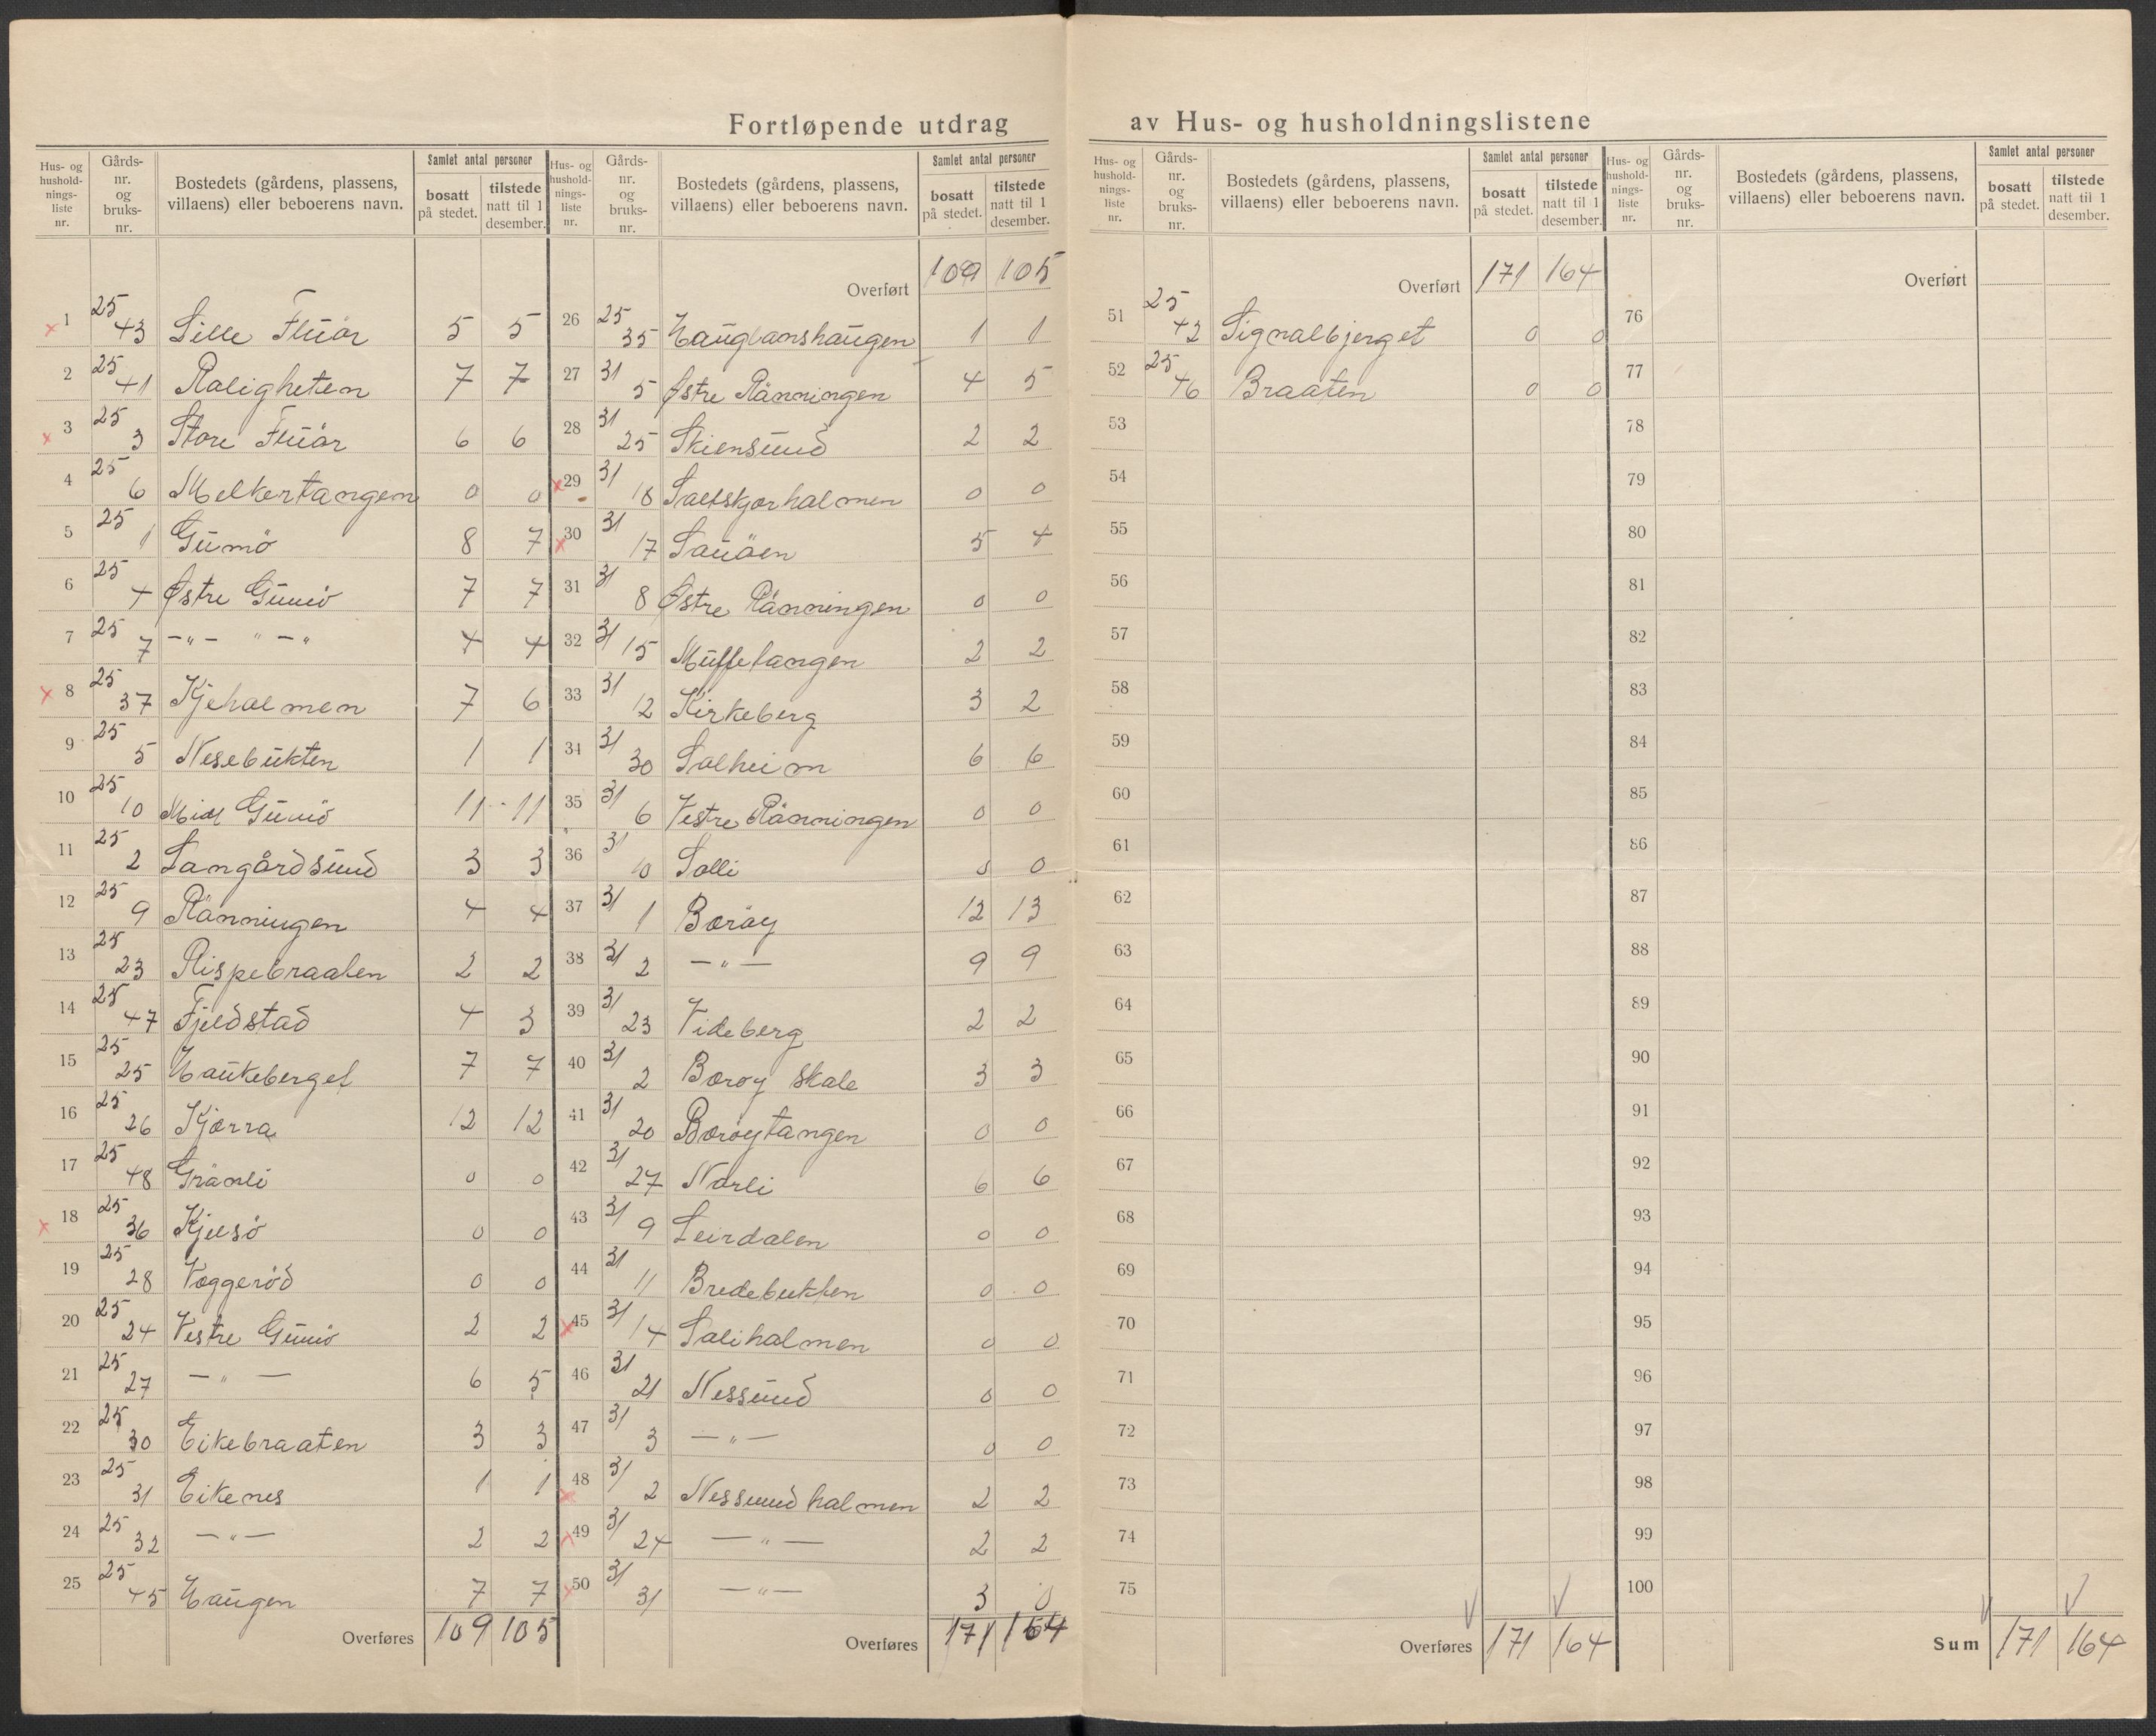 Fortløpende utdrag av Hus- og husholdningslistene
Hus- og husholdnings-liste nr. | Gårds-nr. og bruks-nr. | Bostedets (gårdens, plassens, villaens) eller beboerens navn. | Samlet antal personer | bosatt på stedet. | tilstede natt til 1 desember.
1 25 43 Lille Flüör 5 5
2 25 41 Roligheten 7 7
3 25 3 Store Flüör 6 6
4 25 6 Melkertangen 0 0
5 25 1 Gümö 8 7
6 25 4 Østre Gümö 7 7
7 25 7 -"- "-" 4 4
8 25 37 Kjeholmen 7 6
9 25 5 Nesebükten 1 1
10 25 10 Mid Gümö 11 11
11 25 2 Langårdsünd 3 3
12 25 9 Rönningen 4 4
13 25 23 Rispebraaten 2 2
14 25 47 Fjeldstad 4 3
15 25 25 Haukeberget 7 7
16 25 26 Kjærra 12 12
17 25 48 Grönli 0 0
18 25 36 Kjelsö 0 0
19 25 28 Væggeröd 0 0
20 25 24 Vestre Gümö 2 2
21 25 27 -"- 6 5
22 25 30 Eikebraaten 3 3
23 25 31 Eikenes 1 1
24 25 32 -"- 2 2
25 25 45 Haugen 7 7
Overføres 109 105
Hus- og husholdnings-liste nr. | Gårds-nr. og bruks-nr. | Bostedets (gårdens, plassens, villaens) eller beboerens navn. | Samlet antal personer | bosatt på stedet. | tilstede natt til 1 desember.
Overført 109 105
26 25 35 Hauglanshaugen 1 1
27 31 5 Østre Rönningen 4 5
28 31 25 Skiensünd 2 2
29 31 18 Saltskjorholmen 0 0
30 31 17 Sauöen 5 4
31 31 8 Østre Rönningen 0 0
32 31 15 Müffetangen 2 2
33 31 12 Kirkeberg 3 2
34 31 30 Solheim 6 6
35 31 6 Vestre Rönningen 0 0
36 31 10 Solli 0 0
37 31 1 Borøy 12 13
38 31 2 -"- 9 9
39 31 23 Videberg 2 2
40 31 2 Borøy skole 3 3
41 31 20 Borøytangen 0 0
42 31 27 Norli 6 6
43 31 9 Leirdalen 0 0
44 31 11 Bredebukten 0 0
45 31 14 Saliholmen 0 0
46 31 21 Nessünd 0 0
47 31 3 -"- 0 0
48 31 2 Nessundholmen 2 2
49 31 24 -"- 2 2
50 31 31 -"- 3 0
Overføres 171 164
Hus- og husholdnings-liste nr. | Gårds-nr. og bruks-nr. | Bostedets (gårdens, plassens, villaens) eller beboerens navn. | Samlet antal personer | bosatt på stedet. | tilstede natt til 1 desember.
Overført 171 164
51 25 42 Signalbjerget 0 0
52 25 46 Braaten 0 0
53
54
55
56
57
58
59
60
61
62
63
64
65
66
67
68
69
70
71
72
73
74
75
Overføres 171 164
Hus- og husholdnings-liste nr. | Gårds-nr. og bruks-nr. | Bostedets (gårdens, plassens, villaens) eller beboerens navn. | Samlet antal personer | bosatt på stedet. | tilstede natt til 1 desember.
Overført
76
77
78
79
80
81
82
83
84
85
86
87
88
89
90
91
92
93
94
95
96
97
98
99
100
Sum 171 164